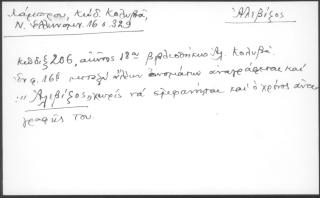 Λάμπρου, Κώδ. Κολυβᾶ,
Ν. Ἑλληνομν. 16 σ. 329
Ἀλιβίζος
Κώδιξ 206, αἰῶνος 18ου βιβλιοθήκης Ἀλ. Κολυβᾶ.
Ἐν φ. 16β μεταξὺ ἄλλων ὀνομάτων ἀναγράφεται καὶ
"Ἀλιβίζος" χωρὶς νὰ ἐμφαίνηται καὶ ὁ χρόνος ἀνα-
γραφῆς του.